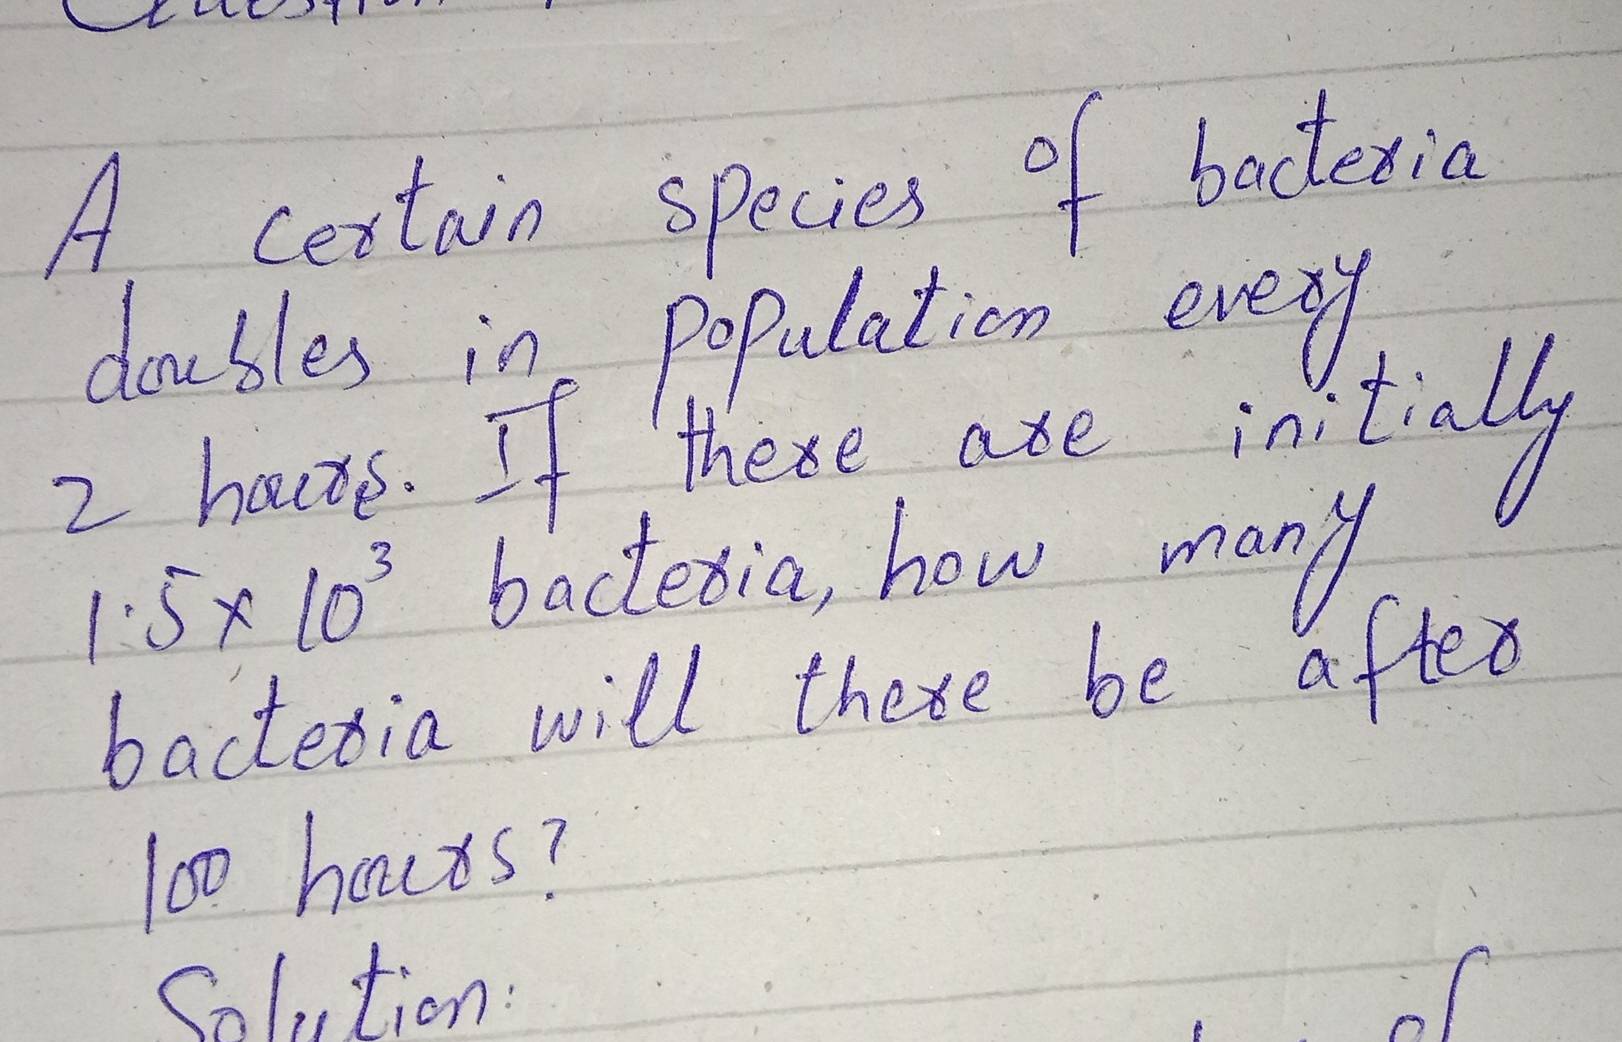 A certain species of bacteria
doubles in population every
2 hours. If there are initially
1.5 x 10³ bacteria, how many
bacteria will there be after
100 hours?
Solution:
of